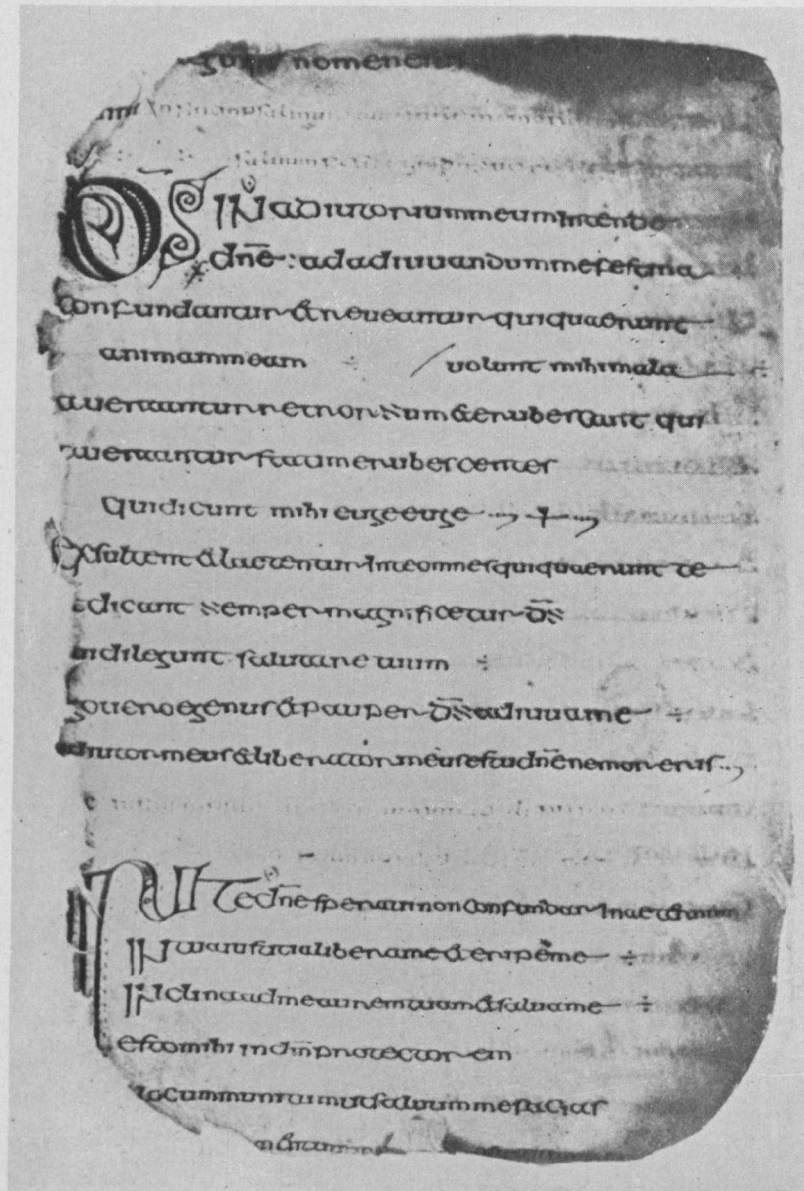 nomen eius
D̄S IN adiutorium meum intende
dn̄e : ad adiuuandum me festina
confundantur & reueantur qui quaerunt
animam meam ÷ / uolunt mihi mala ÷
auertantur retrorsum & erubescant qui
auertantur statim erubescentes
qui dicunt mihi euge euge
Exsultent & laetentur in te omnes qui quaerunt te
& dicant semper magnificetur dn̄s
qui diligunt salutare tuum ÷
ego uero egenus & pauper dn̄s adiuua me ÷
adiutor meus & liberator meus es tu dn̄e ne moreris
IN Te dn̄e speraui non confundar in aeternum
IN tua iustitia libera me & eripe me ÷
INclina ad me aurem tuam & salua me ÷
esto mihi in dm̄ protectorem
& locum munitum ut saluum me facias